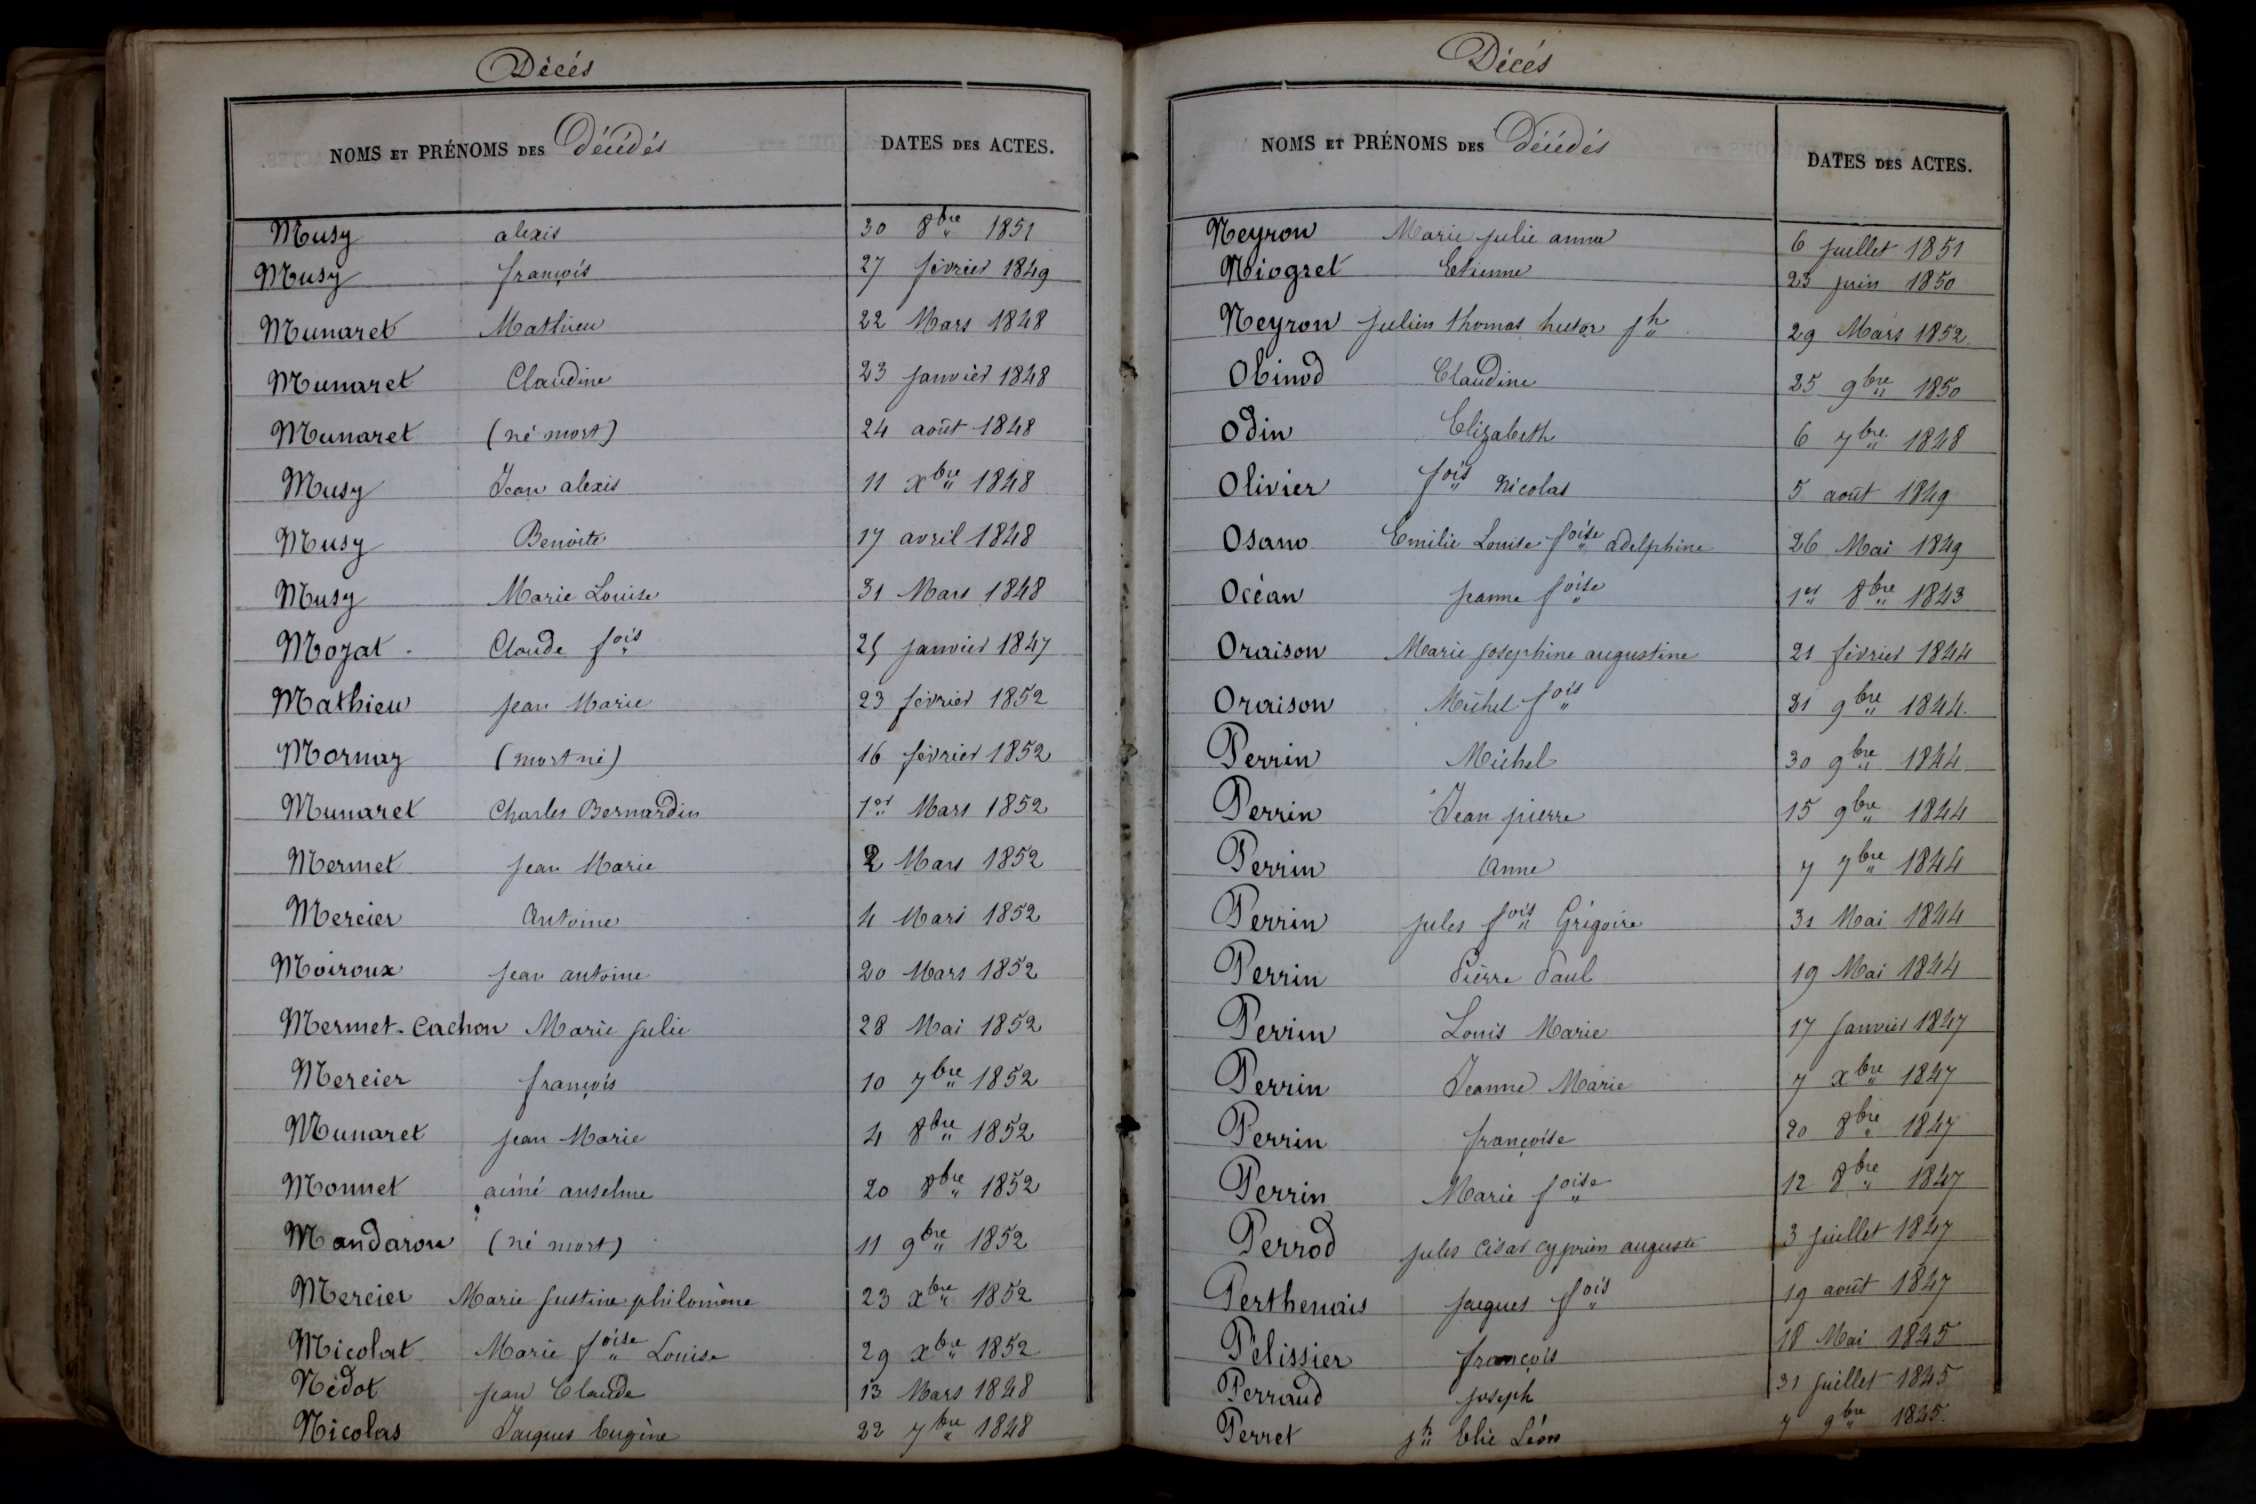 Décès
NOMS ET PRÉNOMS DES Décédés DATES DES ACTES.
Musy alexis 30 8bre 1851
Musy françois 27 février 1849
Munaret Mathieu 22 Mars 1848
Munaret Claudine 23 janvier 1848
Munaret (né mort) 24 août 1848
Musy Jean alexis 11 xbre 1848
Musy Benoite 17 avril 1848
Musy Marie Louise 31 Mars 1848
Mozat Claude fois 25 janvier 1847
Mathieu jean Marie 23 février 1852
Mornay (mort né) 16 février 1852
Munaret Charles Bernardin 1er Mars 1852
Mermet jean Marie 2 Mars 1852
Mercier Antoine 4 Mars 1852
Moiroux jean antoine 20 Mars 1852
Mermet-Cachon Marie julie 28 Mai 1852
Mercier françois 10 7bre 1852
Munaret jean Marie 4 8bre 1852
Monnet aimé anselme 20 8bre 1852
Mandaron (né mort) 11 9bre 1852
Mercier Marie justine philomène 23 xbre 1852
Micolat Marie foise Louise 29 xbre 1852
Nédot jean Claude 13 Mars 1848
Nicolas Jacques Eugène 22 7bre 1848
Décés
NOMS ET PRÉNOMS DES Décédés DATES DES ACTES.
Neyron Marie julie anna 6 juillet 1851
Niogret Etienne 23 juin 1850
Neyron julien thomas hector jh 29 Mars 1852
Obinod Claudine 25 9bre 1850
Odin Elizabeth 6 7bre 1848
Olivier fois Nicolas 5 août 1849
Osano Emilie Louise foise adelphine 26 Mai 1849
Océan jeanne foise 1er 8bre 1843
Oraison Marie josephine augustine 21 février 1844
Oraison Michel fois 21 9bre 1844
Perrin Michel 30 9bre 1844
Perrin Jean pierre 15 9bre 1844
Perrin Anne 7 7bre 1844
Perrin jules fois Grégoire 31 Mai 1844
Perrin Pierre Paul 19 Mai 1844
Perrin Louis Marie 17 janvier 1847
Perrin Jeanne Marie 7 xbre 1847
Perrin françoise 20 8bre 1847
Perrin Marie foise 12 8bre 1847
Perrod jules César cyprien auguste 3 juillet 1847
Perthenais jacques fois 19 août 1847
Pélissier françois 18 Mai 1845
Perraud joseph 31 juillet 1845
Perret jh Elie Léon 7 9bre 1845